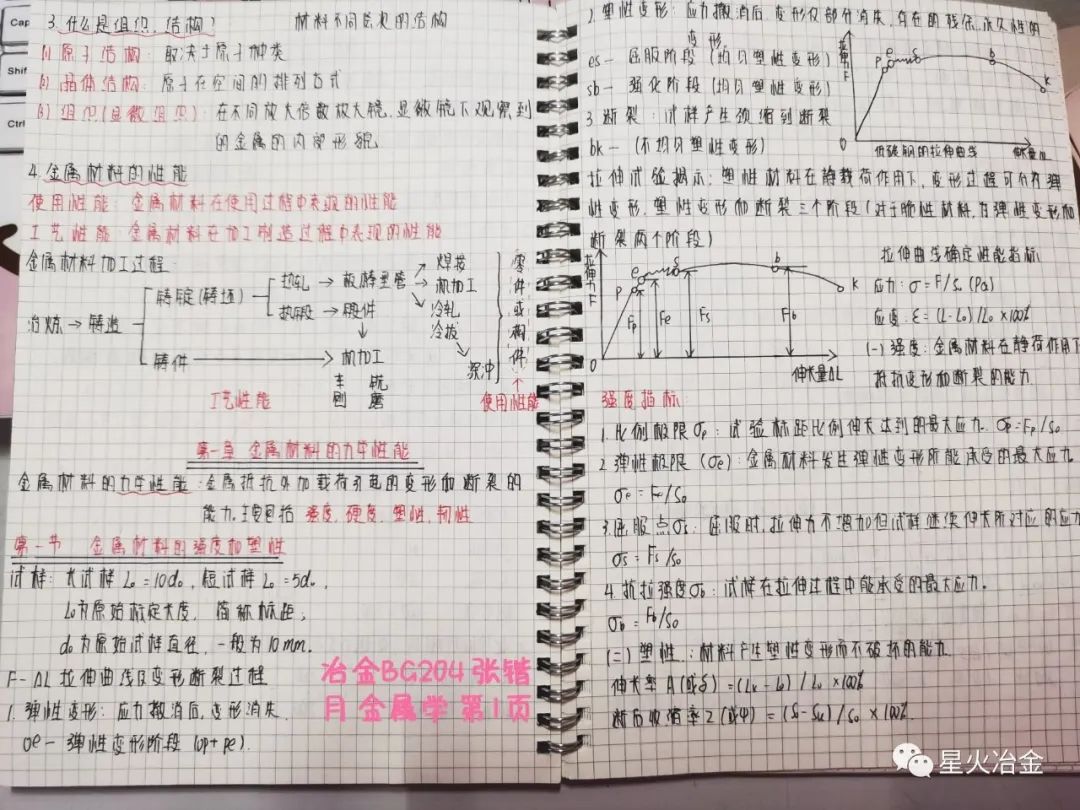 3.什么是组织、结构? 材料不同层次的结构
(1) 原子结构: 取决于原子种类
(2) 晶体结构: 原子在空间的排列方式
(3) 组织(显微组织): 在不同放大倍数放大镜、显微镜下观察到
的金属的内部形貌
4.金属材料的性能
使用性能: 金属材料在使用过程中表现的性能
工艺性能: 金属材料在加工制造过程中表现的性能
金属材料加工过程:
冶炼→铸造
铸锭(铸坯)
热轧→板棒型管
热锻→锻件
焊接
机加工
冷轧
冷拔
深冲
零件或构件
铸件→机加工
车 铣
刨 磨
工艺性能 使用性能
第一章 金属材料的力学性能
金属材料的力学性能:金属抵抗外加载荷引起的变形和断裂的
能力.主要包括 强度、硬度、塑性、韧性
第一节 金属材料的强度和塑性
试样: 长试样 L₀=10d₀, 短试样 L₀=5d₀.
L₀为原始标定长度, 简称标距,
d₀为原始试样直径, 一般为10mm.
F-ΔL拉伸曲线及变形断裂过程
1. 弹性变形: 应力撤消后,变形消失.
oe—弹性变形阶段 (op+pe).
冶金BG204张锴
月金属学第1页
2.塑性变形: 应力撤消后变形仅部分消失,存在的残余、永久性的
变形,
es— 屈服阶段 (均匀塑性变形)
sb— 强化阶段 (均匀塑性变形)
3 断裂: 试样产生颈缩到断裂
bk— (不均匀塑性变形)
拉伸力F
p e s b k
0
低碳钢的拉伸曲线 伸长量ΔL
拉伸试验揭示: 塑性材料在静载荷作用下,变形过程可分为弹
性变形、塑性变形和断裂三个阶段(对于脆性材料,有弹性变形和
断裂两个阶段)
拉伸力F
p e s b k
Fp Fe Fs Fb
0
伸长量ΔL
拉伸曲线确定性能指标
应力: σ=F/S₀ (Pa)
应变: ε=(L-L₀)/L₀×100%
(一)强度:金属材料在静荷作用下
抵抗变形和断裂的能力
强度指标:
1.比例极限σp: 试验标距比例伸长达到的最大应力. σp=Fp/S₀
2 弹性极限(σe):金属材料发生弹性变形所能承受的最大应力
σe=Fe/S₀
3.屈服点σs: 屈服时,拉伸力不增加但试样继续伸长所对应的应力
σs=Fs/S₀
4.抗拉强度σb: 试样在拉伸过程中能承受的最大应力.
σb=Fb/S₀
(二)塑性: 材料产生塑性变形而不破坏的能力
伸长率A(或δ)=(Lk-L₀)/L₀×100%
断后收缩率Z(或ψ)=(S₀-Sk)/S₀×100%.
星火冶金
Shift
Ctrl